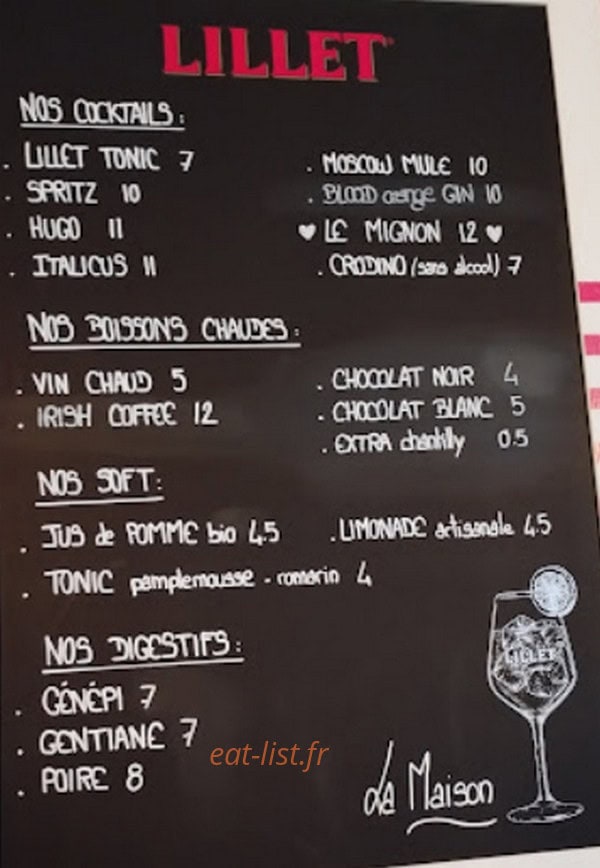 LILLET
NOS COCKTAILS:
. LILLET TONIC 7
. SPRITZ 10
. HUGO 11
. ITALICUS 11
. MOSCOW MULE 10
. BLOOD orange GIN 10
♥ LE MIGNON 12 ♥
. CRODINO (sans alcool) 7
NOS BOISSONS CHAUDES:
. VIN CHAUD 5
. IRISH COFFEE 12
. CHOCOLAT NOIR 4
. CHOCOLAT BLANC 5
. EXTRA chantilly 0.5
NOS SOFT:
. JUS de POMME bio 4.5
. LIMONADE artisanale 4.5
. TONIC pamplemousse - romarin 4
NOS DIGESTIFS:
. GÉNÉPI 7
. GENTIANE 7
. POIRE 8
LILLET
eat-list.fr
La Maison